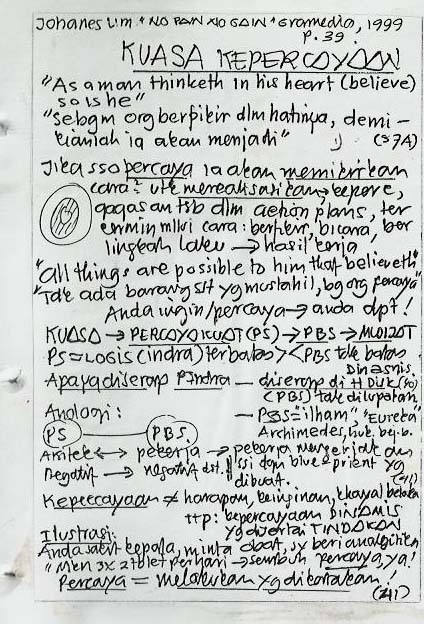 Johanes Lim "NO PAIN NO GAIN" Gramedia, 1999
p. 39.
KUASA KEPERCAYAAN
"As a man thinketh in his heart (believe)
so is he"
"Sebgm org berpikir dlm hatinya, demi-
kianlah ia akan menjadi" (S7A)
Jika sso percaya ia akan memikirkan
cara² utk merealisasikan kepere,
gagasan tsb dlm action plans, ter
cermin mlli cara: berpikir, bicara, ber
tingkah laku → hasil kerja
"All things are possible to him that believeth"
"Tdk ada barang st yg mustahil, bg org percaya"
Anda ingin/percaya → anda dpt!
KUASA → PERCAYA KUAT (PS) → PBS → MUJIZAT
PS = LOGIS (indra) terbatas >< PBS tak batas
Apa yg diserap P.Indra — diserap di
(PBS) tak dilupakan
Analogi: — PBS = "ilham", "Eureka"
PS PBS Archimedes, huk. bej.b.
Arsitek ↔ pekerja → pekerja mengerjakan
Negatif → negatif dst. ssi dgn blue-prient yg
dibuat.
Kepercayaan ≠ harapan, keinginan, khayal belaka
ttp: kepercayaan DINAMIS
yg disertai TINDAKAN
Ilustrasi:
Anda sakit kepala, minta obat, sy beri analgitika
"Mkn 3x 2 tblet perhari → sembuh percaya, ya!
Percaya = melakukan yg dikatakan!
(241)